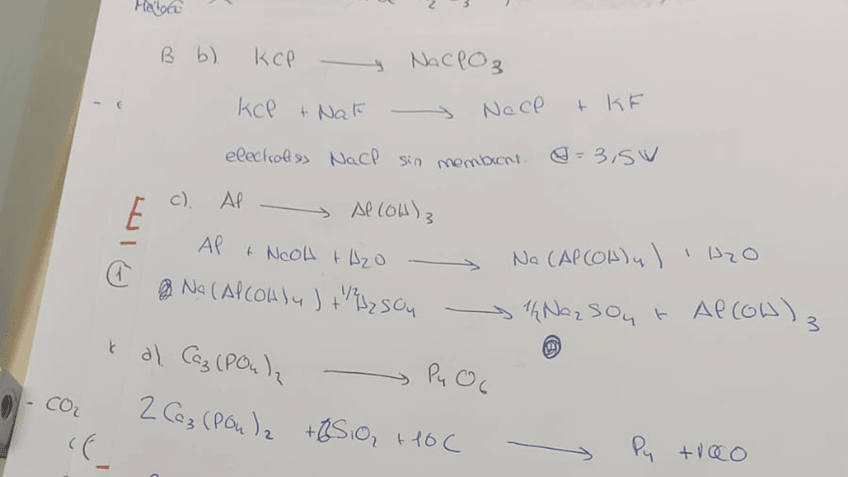 B b) KCl ⟶ NaClO3
KCl + NaF ⟶ NaCl + KF
electrolisis NaCl sin membrana. = 3,5V
E
c). Al ⟶ Al(OH)3
Al + NaOH + H2O ⟶ Na(Al(OH)4) + H2O
1
Na(Al(OH)4) + 1/2 H2SO4 ⟶ 1/2 Na2SO4 + Al(OH)3
d). Ca3(PO4)2 ⟶ P4O6
- CO2
2 Ca3(PO4)2 + 6SiO2 + 10C ⟶ P4 + 10CO